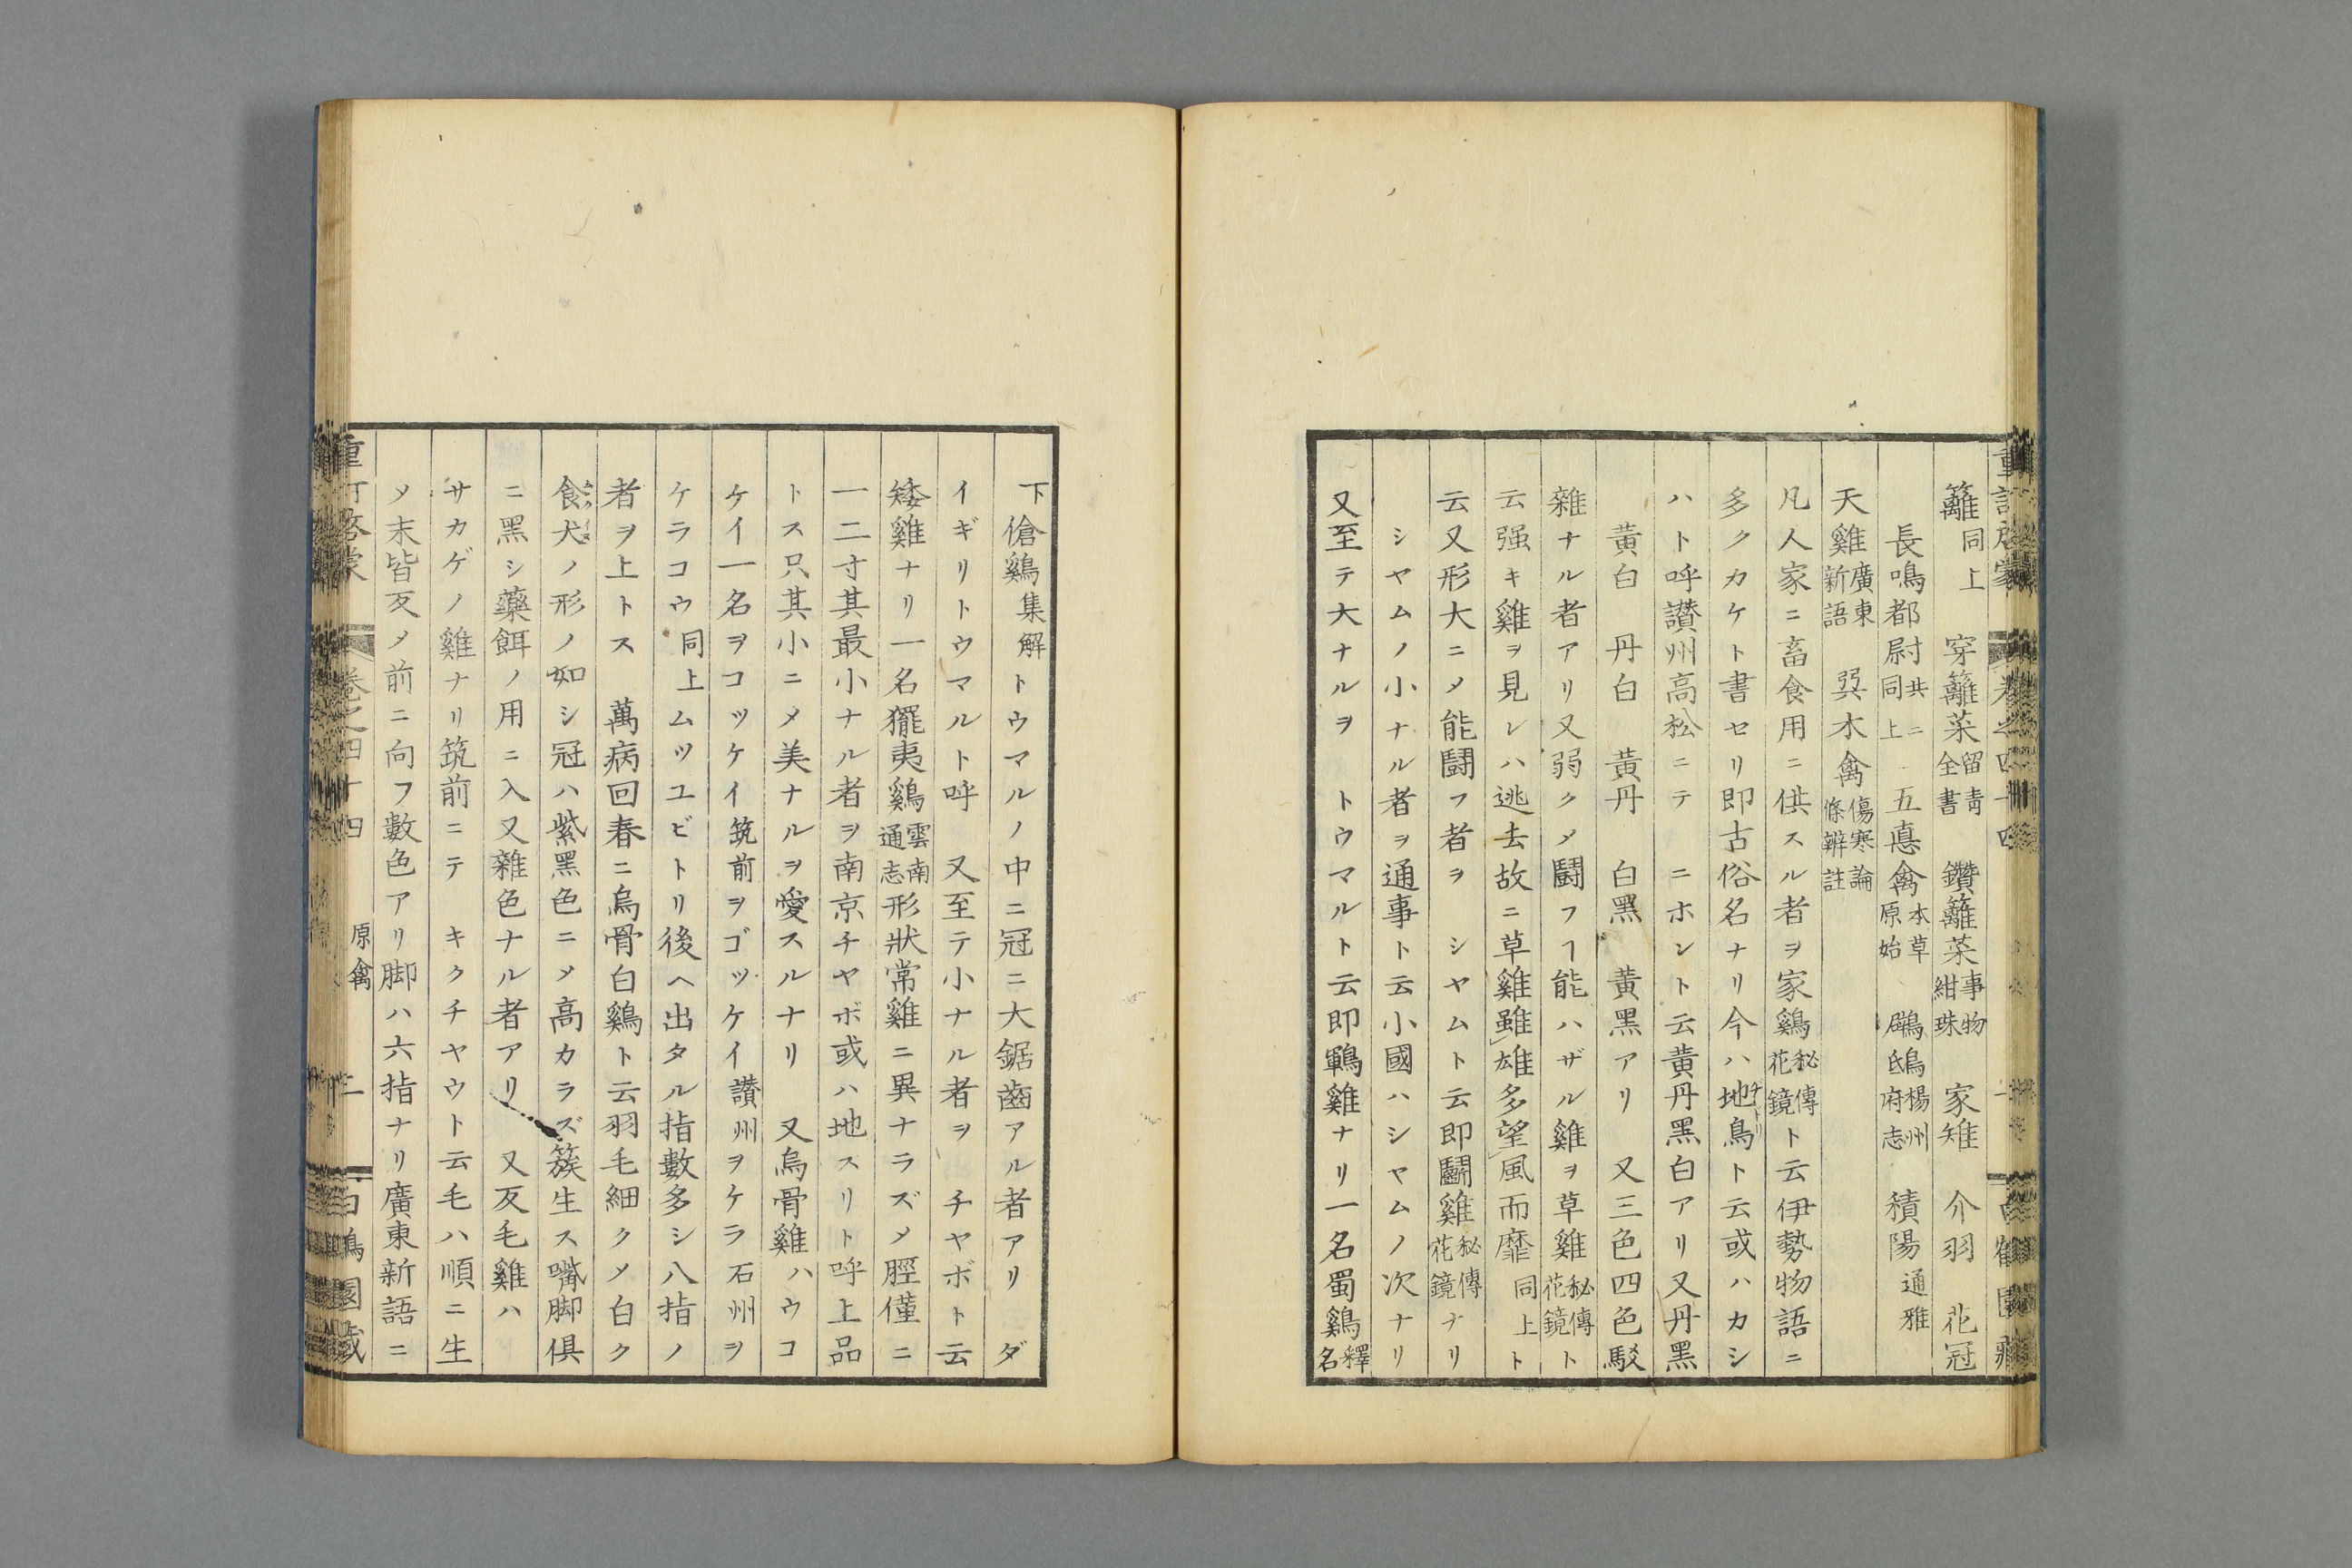 籬同上　穿籬菜留青全書　鑽籬菜事物紺珠　家雉　介羽　花冠
長鳴都尉共ニ同上　五悳禽本草原始　鷿䲬楊州府志　積陽通雅
天雞廣東新語　巽木禽傷寒論條辨註
凡人家ニ畜食用ニ供スル者ヲ家鷄秘傳花鏡ト云伊勢物語ニ
多クカケト書セリ即古俗名ナリ今ハ地鳥ト云或ハカシ
ハト呼讃州高松ニテ　ニホントト云黄丹黑白アリ又丹黑
黄白　丹白　黄丹　白黑　黄黑アリ　又三色四色駁
雜ナル者アリ又弱クメ鬪フヿ能ハザル雞ヲ草雞秘傳花鏡ト
云强キ雞ヲ見レハ逃去故ニ草雞雖雄多望風而靡同上ト
云又形大ニメ能鬪フ者ヲ　シヤムト云即鬪雞秘傳花鏡ナリ
シヤムノ小ナル者ヲ通事ト云小國ハシヤムノ次ナリ
又至テ大ナルヲ　トウマルト云即鶤雞ナリ一名蜀鷄釋名
下傖鷄集解トウマルノ中ニ冠ニ大鋸齒アル者アリ　ダ
イギリトウマルト呼　又至テ小ナル者ヲ　チヤボト云
矮雞ナリ一名玀夷鷄雲南通志形狀常雞ニ異ナラズメ脛僅ニ
一二寸其最小ナル者ヲ南京チヤボ或ハ地スリト呼上品
トス只其小ニメ美ナルヲ愛スルナリ　又烏骨雞ハウコ
ケイ一名ヲコツケイ筑前ヲゴツケイ讃州ヲケラ石州ヲ
ケラコウ同上ムツユビトリ後ヘ出タル指數多シ八指ノ
者ヲ上トス　萬病回春ニ烏骨白鷄ト云羽毛細クメ白ク
食犬ノ形ノ如シ冠ハ紫黑色ニメ高カラズ簇生ス嘴脚俱
ニ黑シ藥餌ノ用ニ入又雜色ナル者アリ　又反毛雞ハ
サカゲノ雞ナリ筑前ニテ　キクチヤウト云毛ハ順ニ生
メ末皆反メ前ニ向フ數色アリ脚ハ六指ナリ廣東新語ニ
卷之四十四　原禽　二